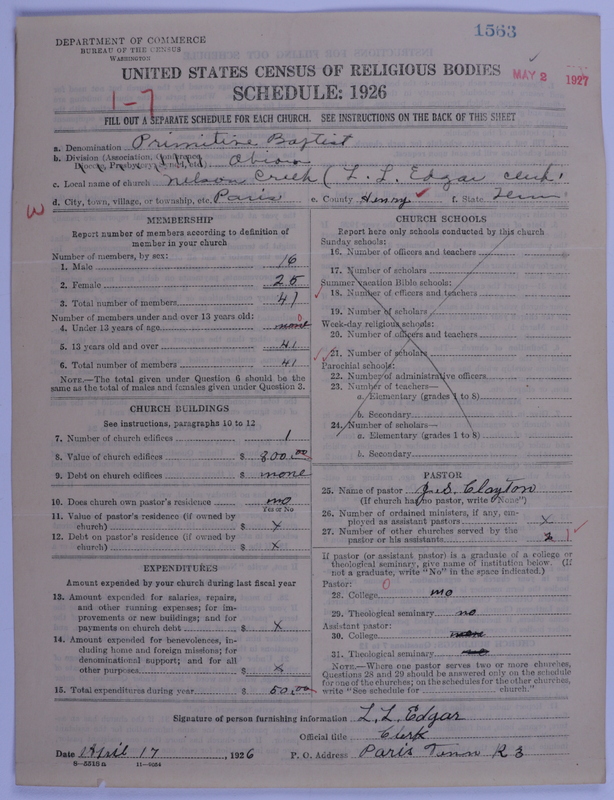 1563
DEPARTMENT OF COMMERCE
BUREAU OF THE CENSUS
WASHINGTON
UNITED STATES CENSUS OF RELIGIOUS BODIES
MAY 2 1927
SCHEDULE: 1926
1-7
FILL OUT A SEPARATE SCHEDULE FOR EACH CHURCH. SEE INSTRUCTIONS ON THE BACK OF THIS SHEET
a. Denomination Primitive Baptist
b. Division (Association, Conference, Diocese, Presbytery, Synod, etc.) Obion
c. Local name of church Nelson Creek (L. L. Edgar clerk)
d. City, town, village, or township, etc. Paris e. County Henry f. State Tenn
W
MEMBERSHIP
Report number of members according to definition of
member in your church
Number of members, by sex:
1. Male 16
2. Female 25
3. Total number of members 41
Number of members under and over 13 years old:
4. Under 13 years of age none 0
5. 13 years old and over 41
6. Total number of members 41
NOTE.—The total given under Question 6 should be the
same as the total of males and females given under Question 3.
CHURCH BUILDINGS
See instructions, paragraphs 10 to 12
7. Number of church edifices 1
8. Value of church edifices $ 800.00
9. Debt on church edifices $ none
10. Does church own pastor's residence no
Yes or No
11. Value of pastor's residence (if owned by
church) $ X
12. Debt on pastor's residence (if owned by
church) $ X
EXPENDITURES
Amount expended by your church during last fiscal year
13. Amount expended for salaries, repairs,
and other running expenses; for im-
provements or new buildings; and for
payments on church debt $ X
14. Amount expended for benevolences, in-
cluding home and foreign missions; for
denominational support; and for all
other purposes $ X
15. Total expenditures during year $ 50.00
CHURCH SCHOOLS
Report here only schools conducted by this church
Sunday schools:
16. Number of officers and teachers
17. Number of scholars
Summer vacation Bible schools:
18. Number of officers and teachers
19. Number of scholars
Week-day religious schools:
20. Number of officers and teachers
21. Number of scholars
Parochial schools:
22. Number of administrative officers
23. Number of teachers—
a. Elementary (grades 1 to 8)
b. Secondary
24. Number of scholars—
a. Elementary (grades 1 to 8)
b. Secondary
PASTOR
25. Name of pastor J. S. Clayton
(If church has no pastor, write "None")
26. Number of ordained ministers, if any, em-
ployed as assistant pastors X
27. Number of other churches served by the
pastor or his assistants 1
If pastor (or assistant pastor) is a graduate of a college or
theological seminary, give name of institution below. (If
not a graduate, write "No" in the space indicated.)
Pastor: 0
28. College no
29. Theological seminary no
Assistant pastor:
30. College
31. Theological seminary
NOTE.—Where one pastor serves two or more churches,
Questions 28 and 29 should be answered only on the schedule
for one of the churches; on the schedules for the other churches,
write "See schedule for church."
Signature of person furnishing information L. L. Edgar
Official title Clerk
Date April 17, 1926 P. O. Address Paris Tenn R 3
8—5518a 11—9054